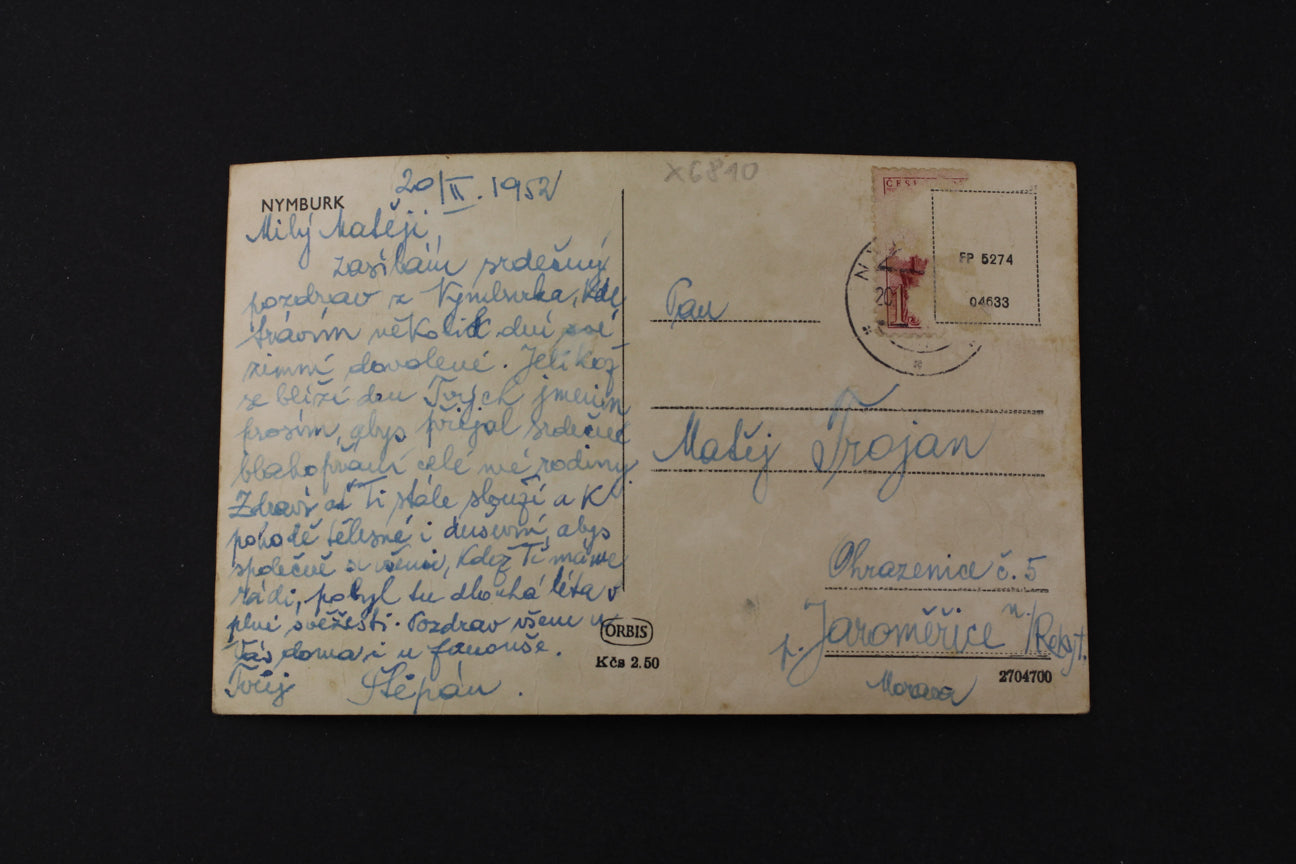 NYMBURK
20/II. 1952
Milý Matěji,
zasílám srdečný
pozdrav z Nymburka, kde
trávím několik dní své
zimní dovolené. Jelikož
se blíží den Tvých jmenin
prosím, abys přijal srdečné
blahopřání celé mé rodiny.
Zdraví ať Ti stále slouží a k
pohodě tělesné i duševní, abys
společně s všemi, kdož Ti máme
rádi, pobyl tu dlouhá léta v
plné svěžesti. Pozdrav všem u
Vás doma i u Fanouše.
Tvůj Štěpán.
ORBIS
Kčs 2.50
X6810
ČES
FP 5274
04633
N
20
1
Pan
Matěj Trojan
Ohrazenice č. 5
p. Jaroměřice n./Rokyt.
Morava
2704700